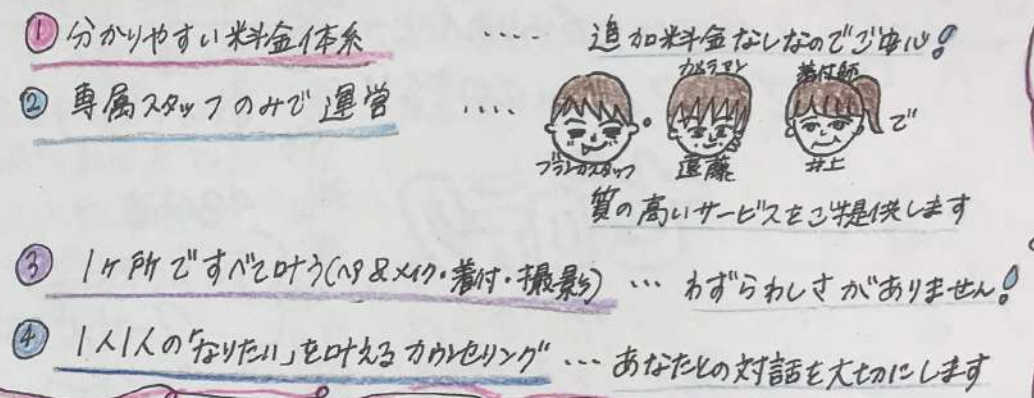 ① 分かりやすい料金体系 ‥‥ 追加料金なしなのでご安心!
② 専属スタッフのみで運営 ‥‥
カメラマン 着付師
で
ブランカスタッフ 遠藤 井上
質の高いサービスをご提供します
③ 1ヶ所ですべて叶う(ヘア&メイク・着付・撮影) … わずらわしさがありません!
④ 1人1人の「なりたい」を叶えるカウンセリング … あなたとの対話を大切にします